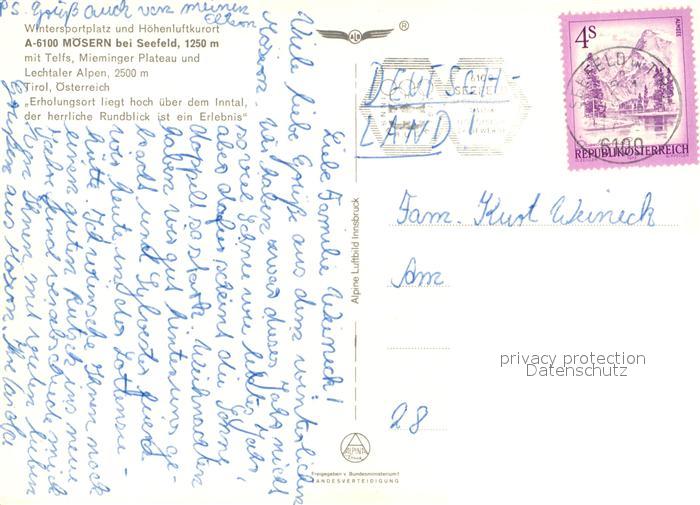 PS. Gruß auch von meinen
Eltern
Wintersportplatz und Höhenluftkurort
A-6100 MÖSERN bei Seefeld, 1250 m
mit Telfs, Mieminger Plateau und
Lechtaler Alpen, 2500 m
Tirol, Österreich
„Erholungsort liegt hoch über dem Inntal,
der herrliche Rundblick ist ein Erlebnis“
®
Liebe Familie Weineck!
Viele liebe Grüße aus dem winterlichen
Mösern. Wir haben zwar dieses Jahr nicht
soviel Schnee wie letztes Jahr,
aber dafür scheint die Sonne
doppelt so stark. Weihnachten
haben wir gut hinter uns ge-
bracht und Sylvester feiern
wir heute in der Lottensee-
hütte. Ich wünsche Ihnen noch
einen guten Rutsch ins neue
Jahr und verabschiede mich
von Ihnen mit vielen lieben
Grüßen aus Mösern. Ihre
Alpine Luftbild Innsbruck
DEUTSCH-
LAND!
4S
ALMSEE
SEEFELD IN TIROL
6100
REPUBLIK ÖSTERREICH
Fam. Kurt Weineck
Am
28
privacy protection
Datenschutz
ALPINE
Freigegeben v. Bundesministerium f.
LANDESVERTEIDIGUNG